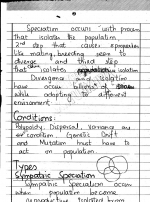 Speciation occurs with process
that isolates the population.
2nd step that causes
like mating, breeding seen to
diverge and third step
that isolates population isolation
Divergence and isolation
have occur billions of
while adapting to different
environment.
Conditions:
Polyploidy, Dispersal,
are condition Genetic Drift
and Mutation must have to
act on population.
Types
Sympatric Speciation
Sympatric Speciation occur
when population become
reproductive isolated from